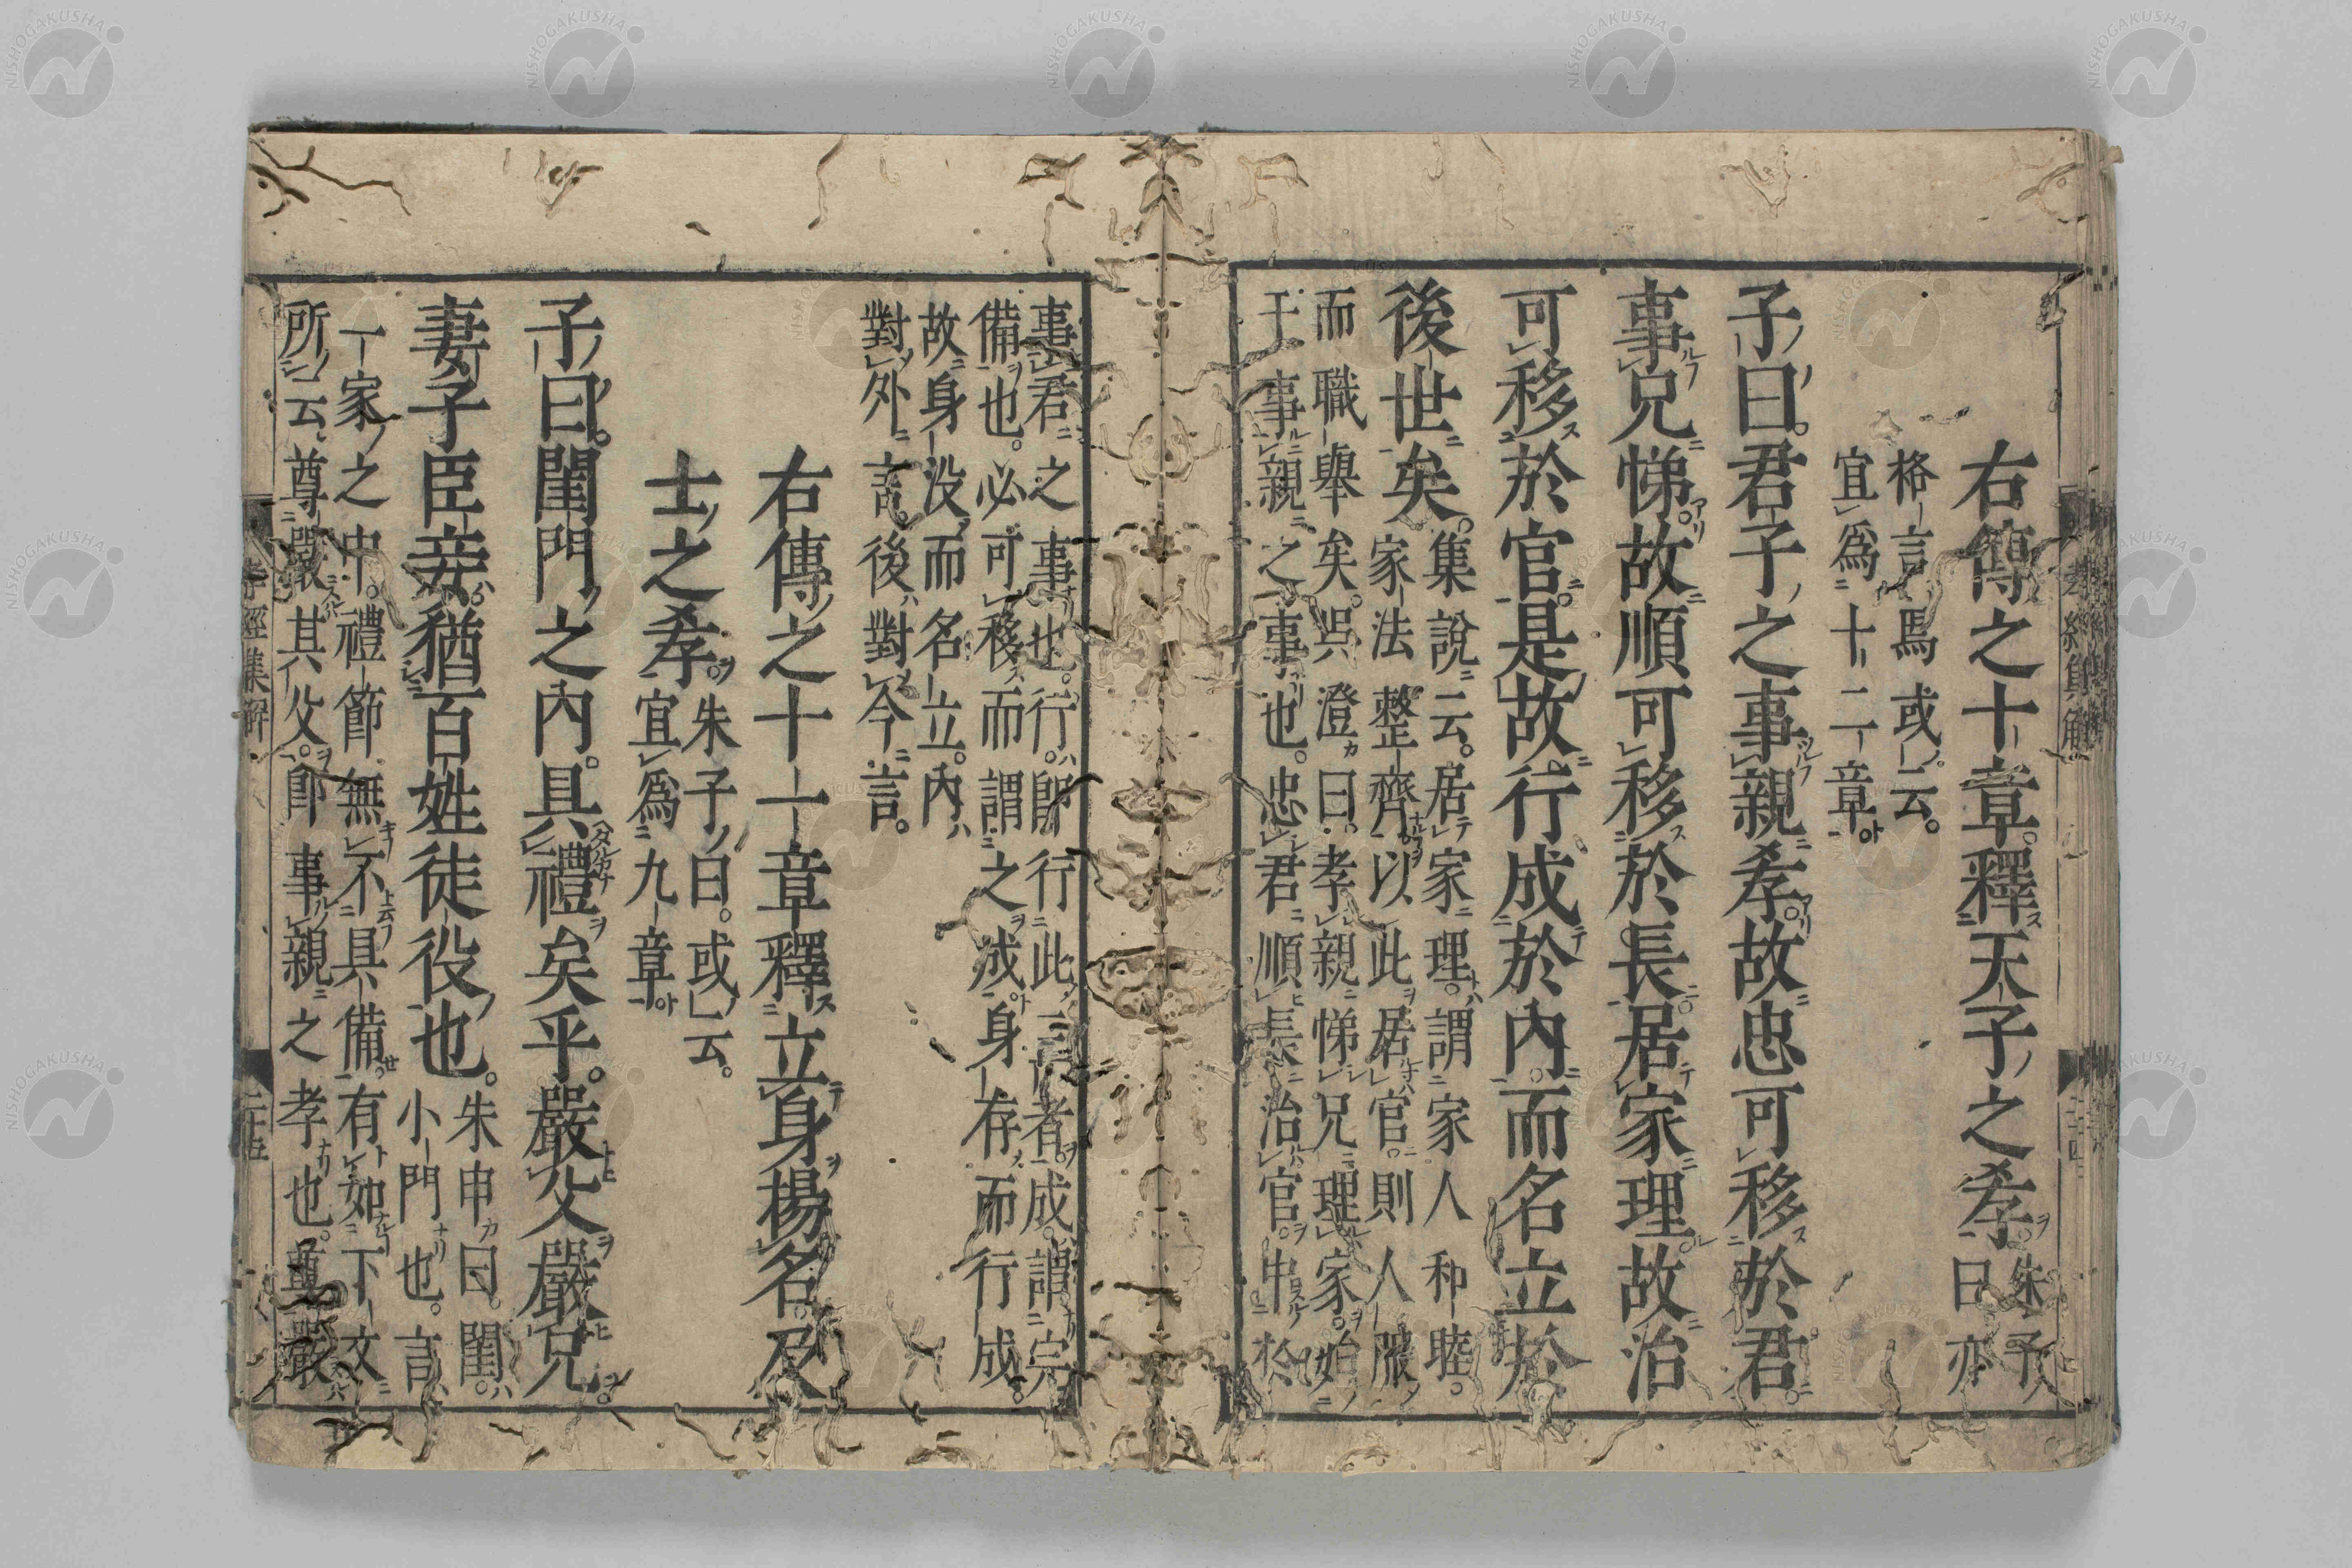 右傳之十章。釋天子之孝。朱子
曰。亦
格言焉或云。
宜爲十二章。
子曰。君子之事親孝。故忠可移於君。
事兄悌。故順可移於長。居家理。故治
可移於官。是故行成於內。而名立於
後世矣。
集說云。居家理。謂家人和睦。
家法整齊。以此居官。則人服
而職舉矣。吳澄曰。孝親悌兄理家。始
于事親之事也。忠君順長治官。中於
事君之事也。行。即行此三者。成。謂完
備也。必可移而謂之成。身存而行成。
故身沒而名立。內對
外言。後對今言。
右傳之十一章釋立身揚名。及
士之孝。
朱子曰。或云。
宜爲九章
子曰。閨門之內。具禮矣乎。嚴父嚴兄。
妻子臣妾。猶百姓徒役也。
朱申曰。閨。
小門也。言
一家之中。禮節無不具備。有如下文
所云。尊嚴其父。即事親之孝也。尊嚴
孝經集解
二十四
孝經集解
二十五
NISHOGAKUSHA